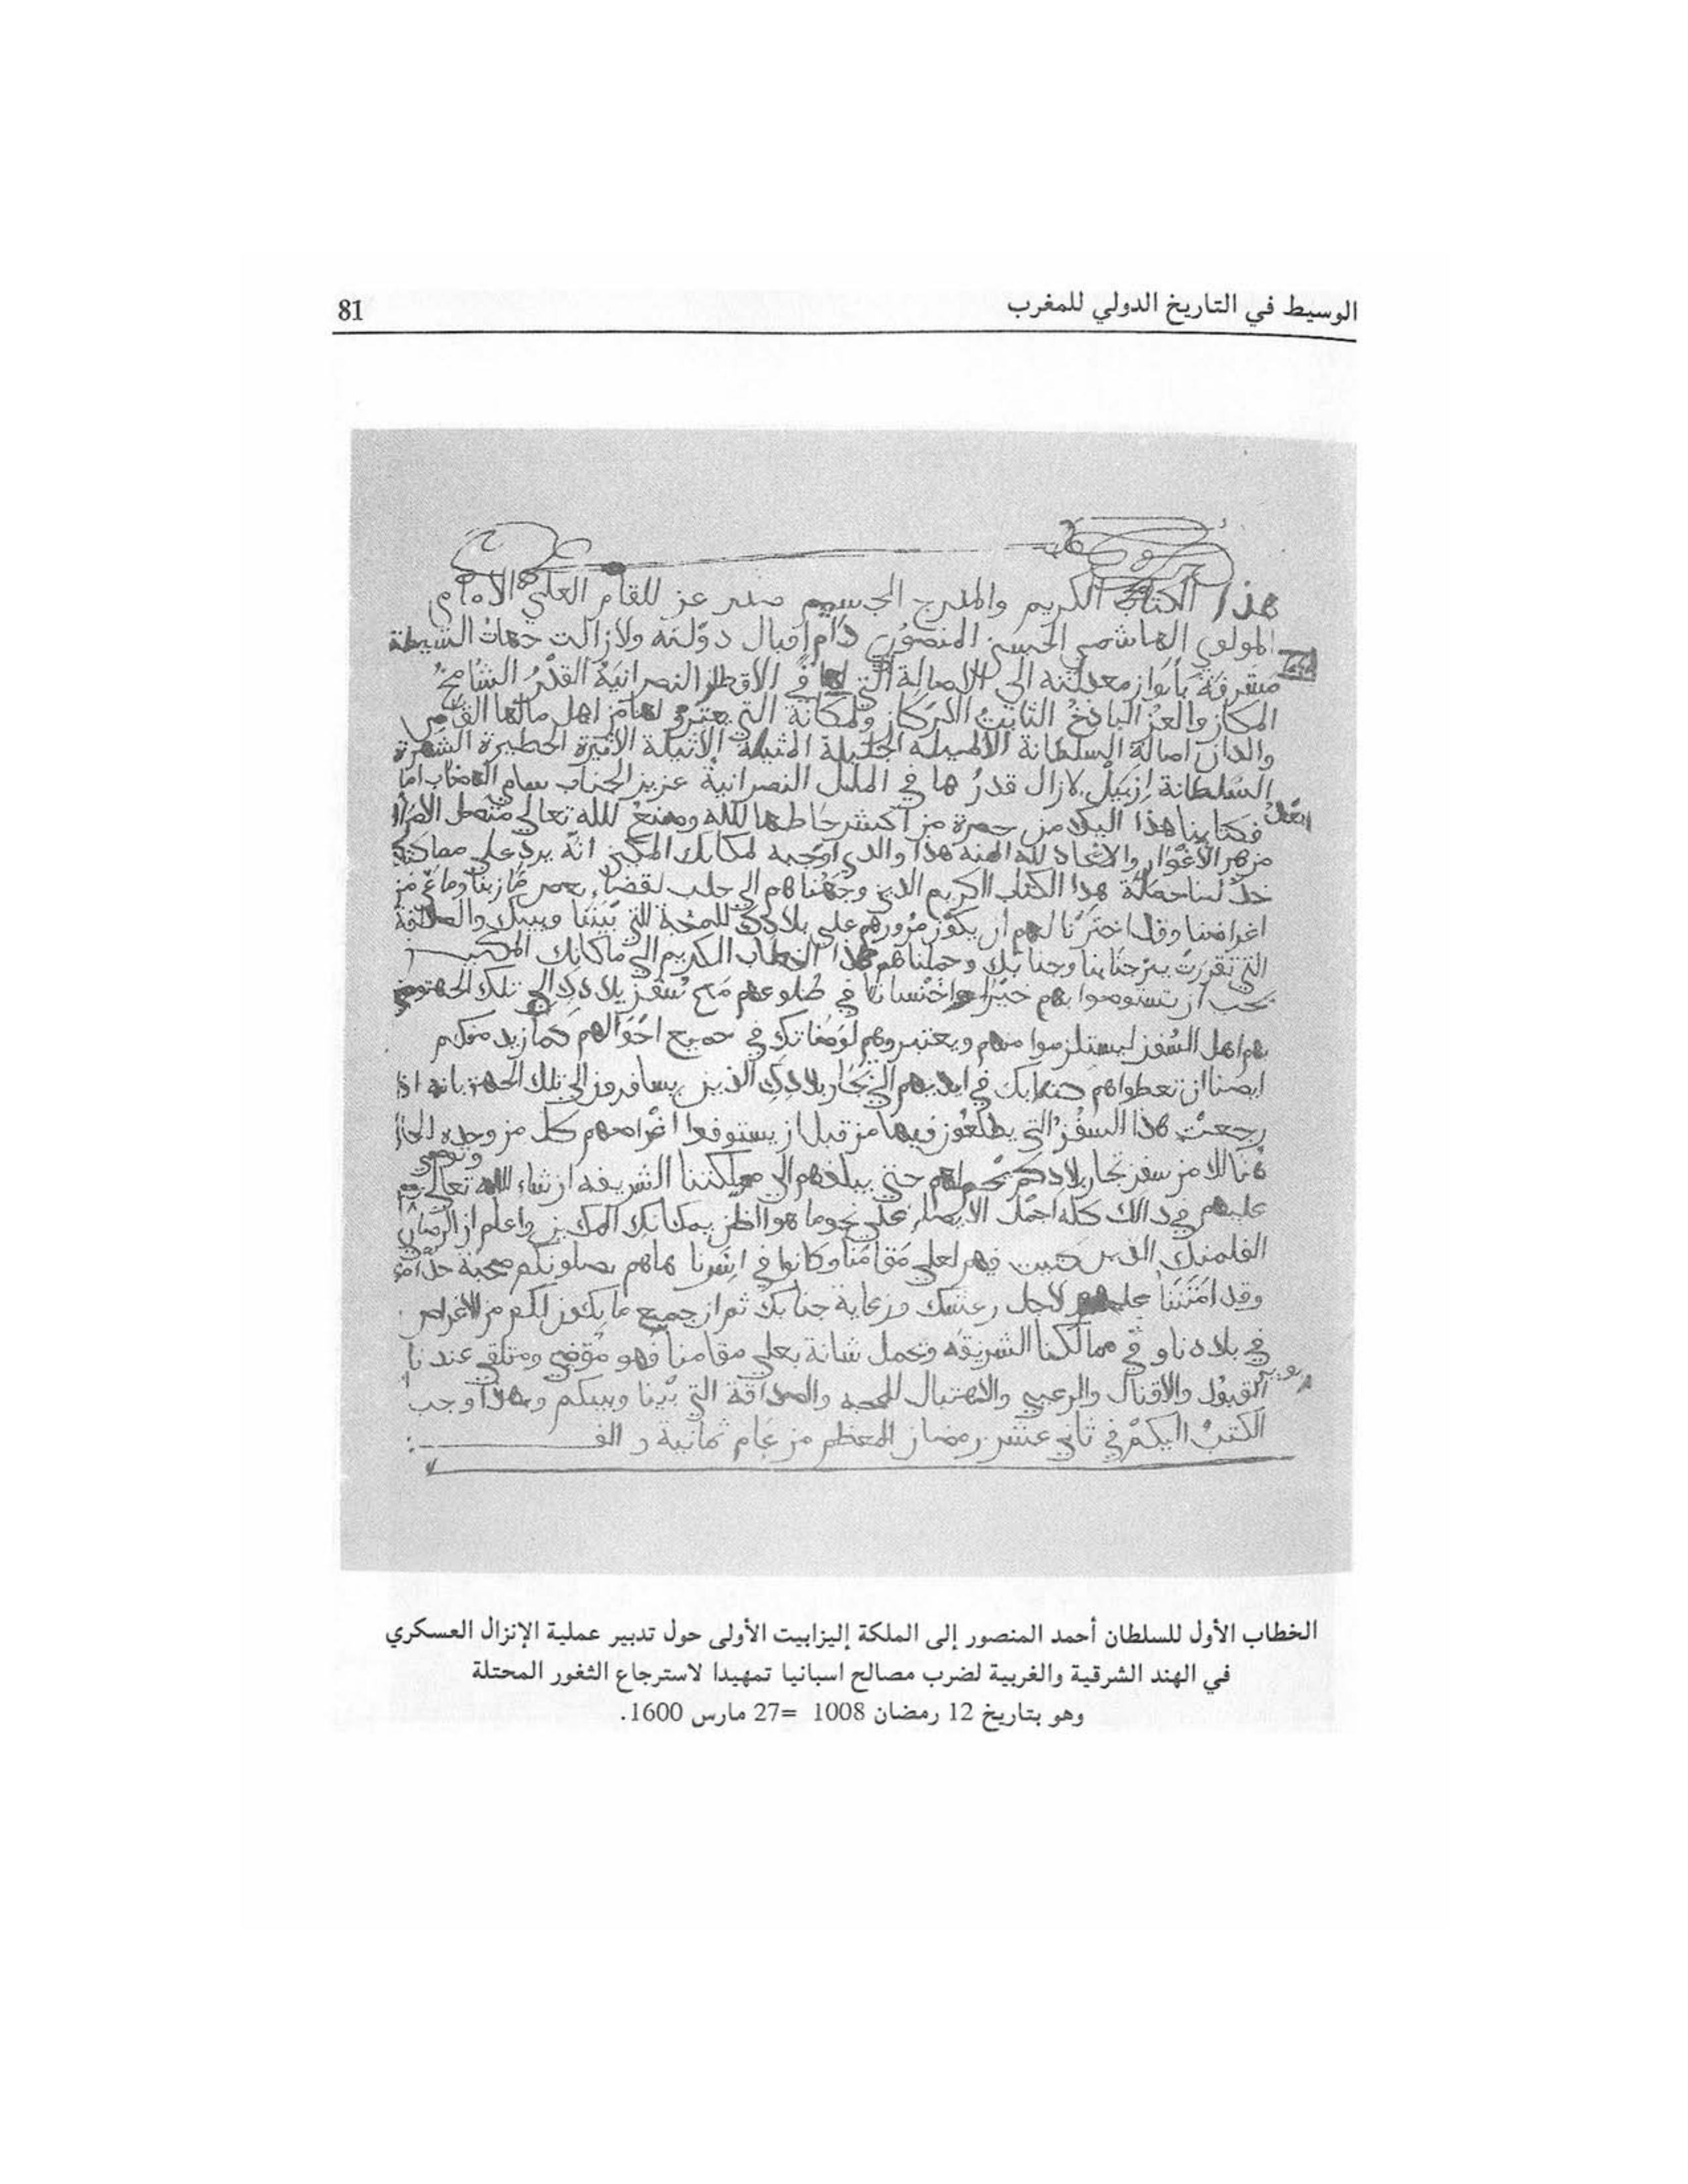 الوسيط في التاريخ الدولي للمغرب
81
هذا الكتاب الكريم والمدرج الجسيم صدر عن المقام العلي الامامي
المولوي الهاشمي الحسني المنصوري دام اقبال دولته ولازالت جهات البسيطة
مشرفة بأنوار معدلته الى الاصالة التي لها في الاقطار النصرانية القدر الشامخ
المكان والعز الباذخ الثابت الاركان والمكانة التي يعترف لها من اهل مالها القاصي
والدان اصالة السلطانة الاصيلة الجليلة المثيلة الاثيلة الاثيرة الخطيرة الشهيرة
السلطانة إزبيل لازال قدرها في الملل النصرانية عزيز الجناب سامي امّا
بعد فكتابنا هذا اليكم من حضرة مراكش حاطها الله وصنع الله تعالى متصل
من هذه والانجاد لله المنه هذا والذي اوجبه لمكانك المكين انه يرد على
حملة هذا الكتاب الكريم الذين وجهناهم الى حلب لقضاء بعض مآربنا من
اغراضنا وقد اخترنا لهم ان يكون مرورهم على بلادك للمحبة التي بيننا وبينك والصداقة
التي تقررت بين جنابنا وجنابك وحملناهم هذا الخطاب الكريم الى مكانك المكين
نحب ان تستوصوا بهم خيرا واحسانا في طلوعهم مع سفن بلادك الى تلك الجهة وتوصي
بهم اهل السفن ليستلزموا منهم ويعتبروهم لوصاتك في جميع احوالهم كما نريد منكم
ايضا ان تعطواهم كتابك في ايديهم الى تجار بلادك الذين يسافرون الى تلك الجهة بانه اذا
رجعت هذا السفن التي يطلعون فيها من قبل ان يستوفوا اغراضهم كل من وجده الحال
هنالك من سفن تجار بلادكم يحملهم حتى يبلغهم الى مملكتنا الشريفه ان شاء الله تعالى وتوصي
عليهم في ذالك كله اجمل الايصاء على نحو ما هو الظن بمكانك المكين واعلم ان
الفلمنك الذين كتبت فيهم لعلي مقامنا وكانوا في اسرنا هاهم يصلونكم صحبة خدامنا
وقد امتننا عليهم لاجل رغبتك ورعاية جنابك ثم ان جميع ما يكون لكم من الاغراض
في بلادنا وفي ممالكنا الشريفه وتحمل شانه بعلي مقامنا فهو مقضي ومتلقى عندنا
القبول والاقبال والرعي والاهتبال للمحبه والصداقة التي بيننا وبينكم وبهذا وجب
الكتب اليكم في ثاني عشر رمضان المعظم من عام ثمانية و الف
الخطاب الأول للسلطان أحمد المنصور إلى الملكة إليزابيت الأولى حول تدبير عملية الإنزال العسكري
في الهند الشرقية والغربية لضرب مصالح اسبانيا تمهيدا لاسترجاع الثغور المحتلة
وهو بتاريخ 12 رمضان 1008 =27 مارس 1600.